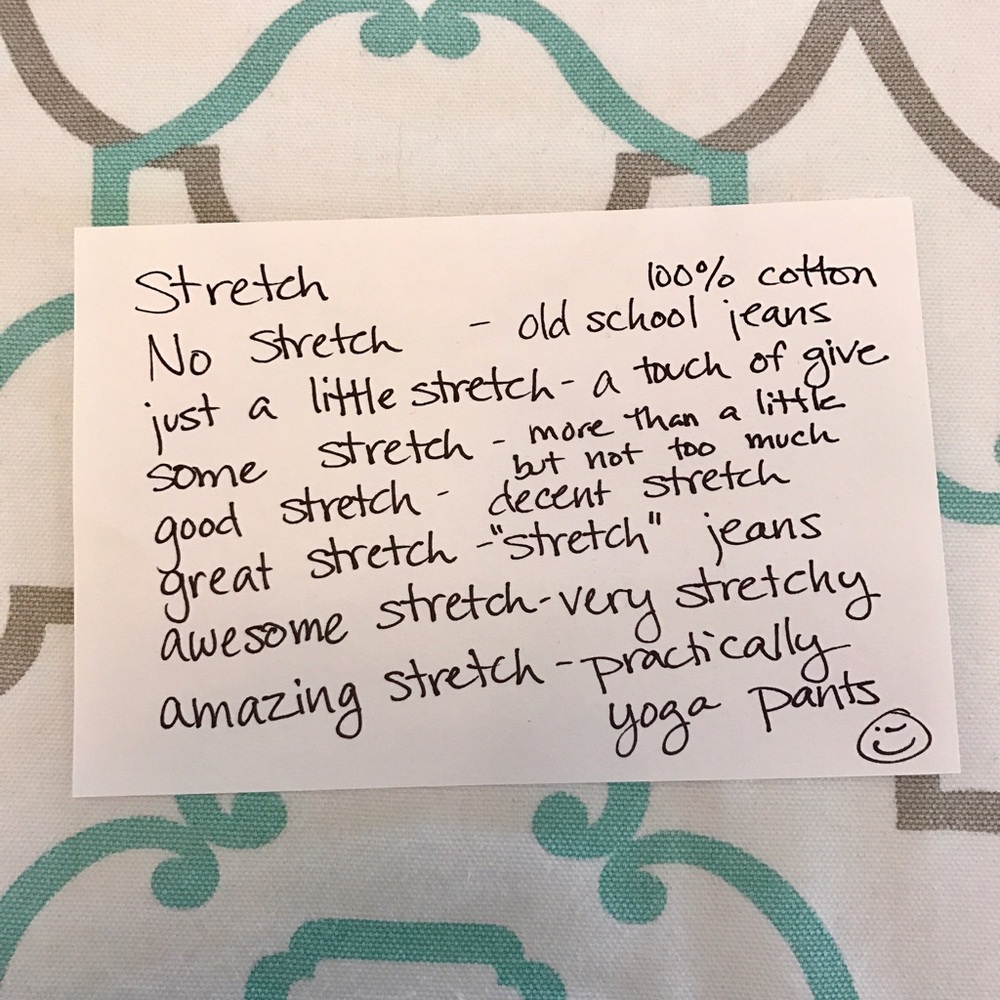 Stretch
100% cotton
No stretch - old school jeans
just a little stretch - a touch of give
some stretch - more than a little
but not too much
good stretch - decent stretch
great stretch - "stretch" jeans
awesome stretch - very stretchy
amazing stretch - practically
yoga pants